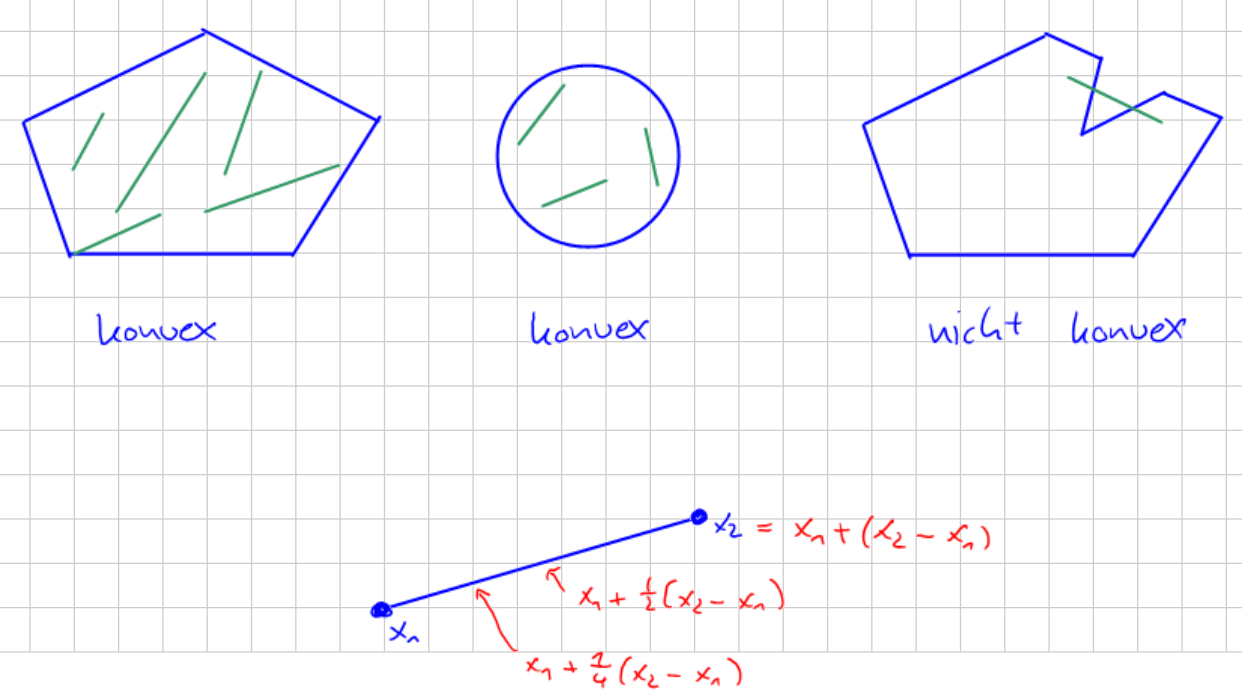 konvex
konvex
nicht konvex
x₂ = x₁ + (x₂ - x₁)
x₁ + ½(x₂ - x₁)
x₁
x₁ + ¼(x₂ - x₁)